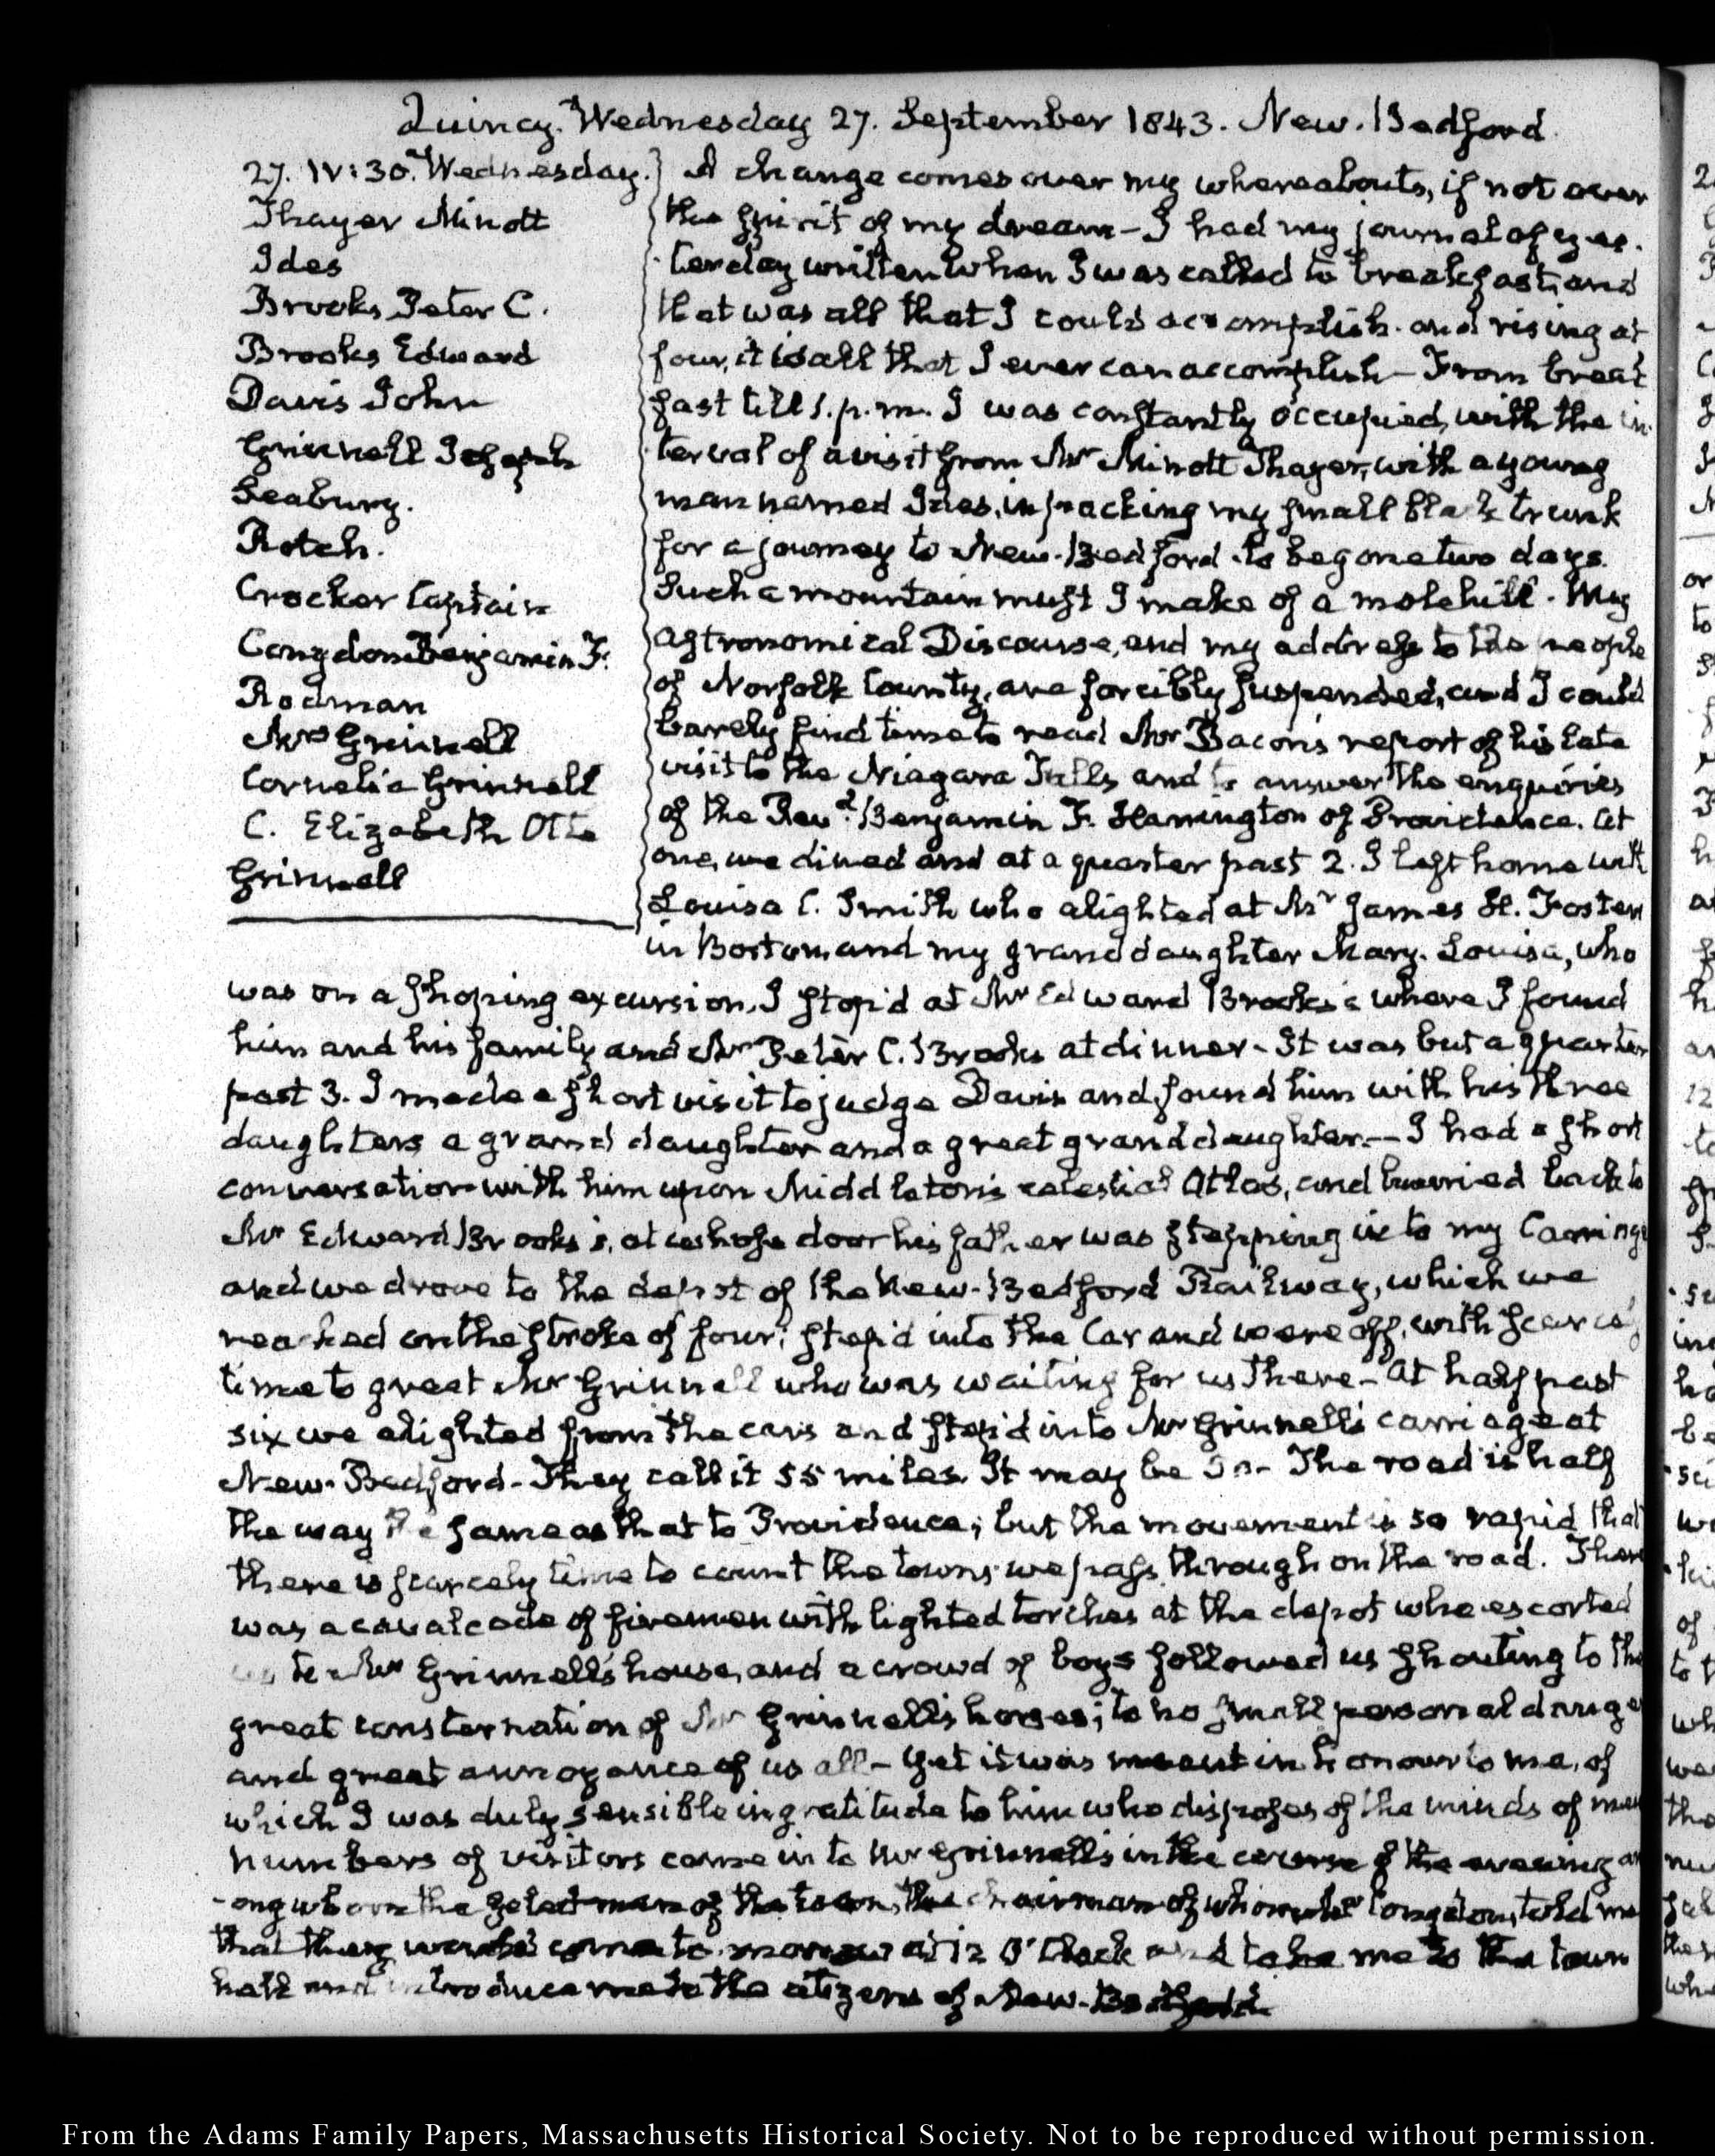 Quincy. Wednesday 27. September 1843. New-Bedford
27. IV:30. Wednesday.
Thayer Minott
Ides
Brooks Peter C.
Brooks Edward
Davis John
Grinnell Joseph
Seabury.
Rotch.
Crocker Captain
Congdon Benjamin F.
Rodman
Mrs Grinnell
Cornelia Grinnell
C. Elizabeth Otte
Grinnell
A change comes over my whereabouts, if not over
the spirit of my dream - I had my journal of yes-
terday written when I was called to breakfast, and
that was all that I could accomplish. and rising at
four, it is all that I ever can accomplish - From break
fast till 1. p.m. I was constantly occupied, with the in
terval of a visit from Mr Minott Thayer, with a young
man named Ides, in packing my small black trunk
for a journey to New-Bedford to be gone two days.
Such a mountain must I make of a molehill. My
astronomical Discourse, and my address to the people
of Norfolk County, are forcibly suspended, and I could
barely find time to read Mr Bacon's report of his late
visit to the Niagara Falls and to answer the enquiries
of the Revd. Benjamin F. of Providence. At
one, we dined and at a quarter past 2. I left home with
Louisa C. Smith who alighted at Mr James H. Foster
in Boston, and my granddaughter Mary-Louisa, who
was on a shoping excursion. I stop'd at Mr Edward Brooks's where I found
him and his family and Mr Peter C. Brooks at dinner - It was but a quarter
past 3. I made a short visit to judge Davis and found him with his three
daughters a grand daughter and a great granddaughter. - I had a short
conversation with him upon Middleton's celestial Atlas, and hurried back to
Mr Edward Brooks's, at whose door his father was stepping into my Carriage
and we drove to the depot of the New-Bedford Railway, which we
reached on the stroke of four; step'd into the Car and were off, with scarcely
time to greet Mr Grinnell who was waiting for us there - At half past
six we alighted from the cars and step'd into Mr Grinnell's carriage at
New-Bedford - They call it 55 miles. It may be - The road is half
the way the same as that to Providence; but the movement is so rapid that
there is scarcely time to count the towns we pass through on the road. There
was a cavalcade of firemen with lighted torches at the depot who escorted
us to Mr Grinnell's house, and a crowd of boys followed us shouting to the
great consternation of Mr Grinnell's horses; to no small personal danger
and great annoyance of us all - Yet it was meant in honour to me, of
which I was duly sensible in gratitude to him who disposes of the minds of men
numbers of visitors came in to Mr Grinnell's in the course of the evening am
-ong whom the select men of the town, the chairman of whom Mr Congdon, told me
that they would come to-morrow at 12 O'Clock and take me to the town
hall and introduce me to the citizens of New-Bedford.
From the Adams Family Papers, Massachusetts Historical Society. Not to be reproduced without permission.